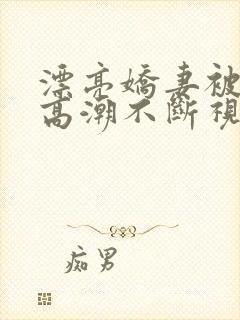 漂亮嬌妻被
高潮不斷視
痴男